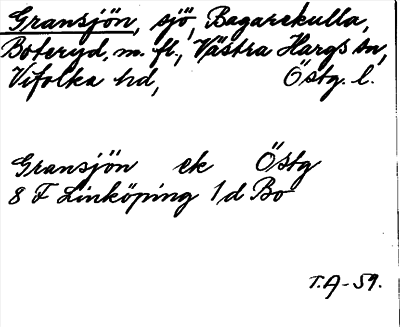 Gransjön, sjö, Bagarekulla,
Boteryd, m. fl., Västra Hargs sn,
Vifolka hd, Östg. l.
Gransjön ek Östg
8 F Linköping 1 d Bo
T.A-59.